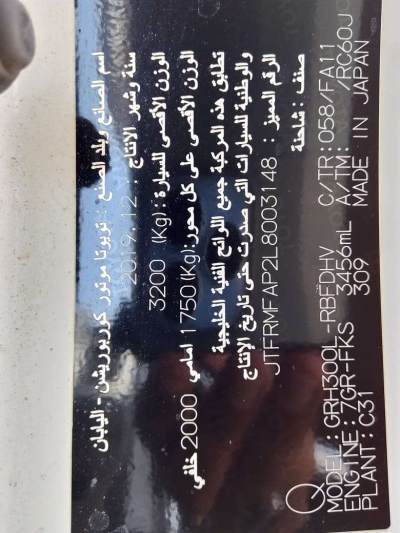 اسم الصانع وبلد الصنع : تويوتا موتور كوربوريشن - اليابان
سنة وشهر الانتاج : 2019.12
الوزن الأقصى للسيارة:(Kg) 3200
الوزن الأقصى على كل محور:(Kg)1750 امامي 2000 خلفي
تطابق هذه المركبة جميع اللوائح الفنية الخليجية
والوطنية للسيارات التي صدرت حتى تاريخ الإنتاج
الرقم المميز : JTFRMFAP2L8003148
صنف : شاحنة
MODEL:GRH300L-RBFDHV C/TR:058/FA11
ENGINE:7GR-FKS 3456mL A/TM: /RC60J
PLANT:C31 309 MADE IN JAPAN